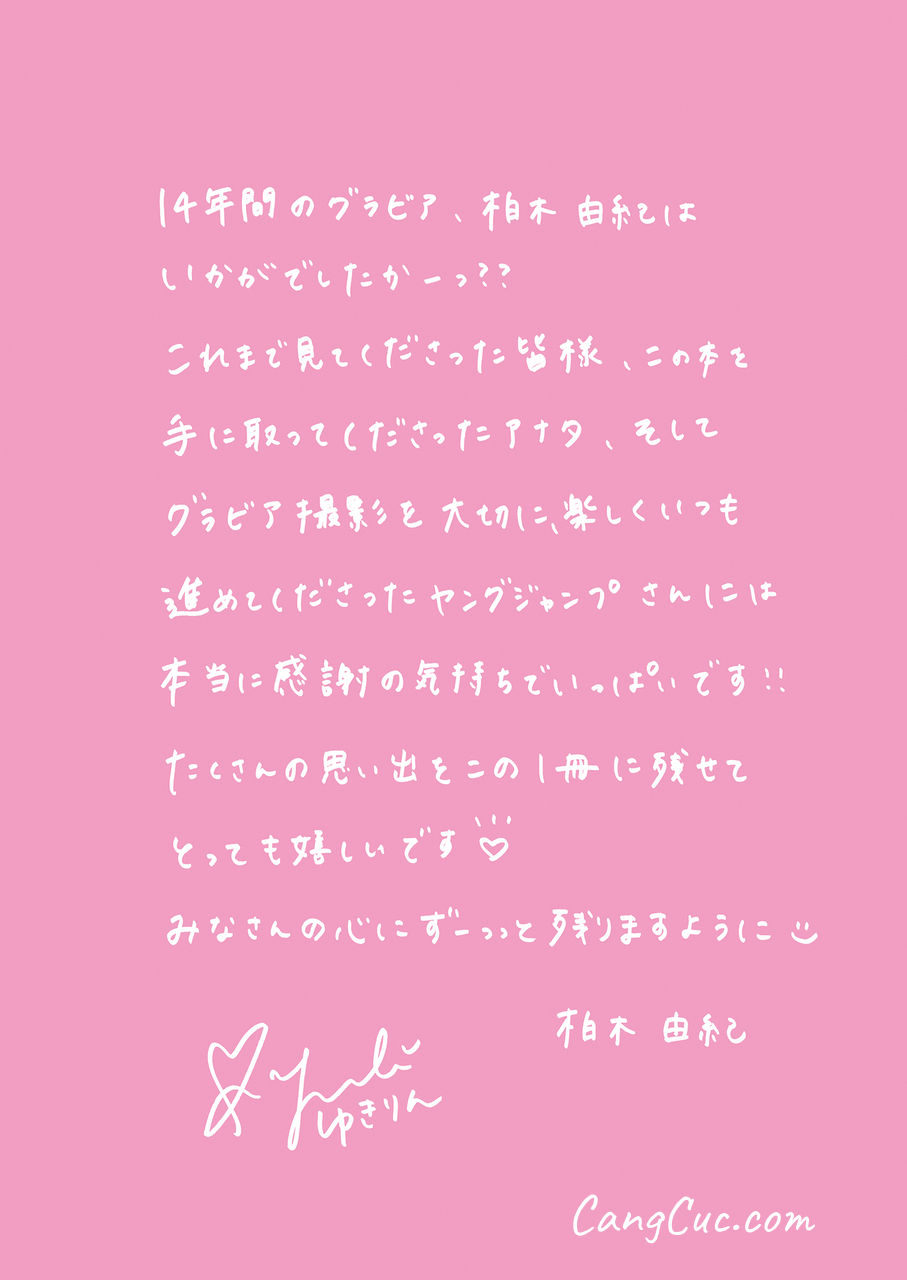 14年間のグラビア、柏木 由紀は
いかがでしたかーっ??
これまで見てくださった皆様、この本を
手に取ってくださったアナタ、そして
グラビア撮影を大切に、楽しくいつも
進めてくださったヤングジャンプさんには
本当に感謝の気持ちでいっぱいです!!
たくさんの思い出をこの1冊に残せて
とっても嬉しいです♡
みなさんの心にずーっっと残りますように
柏木 由紀
Yuki
ゆきりん
CangCuc.com